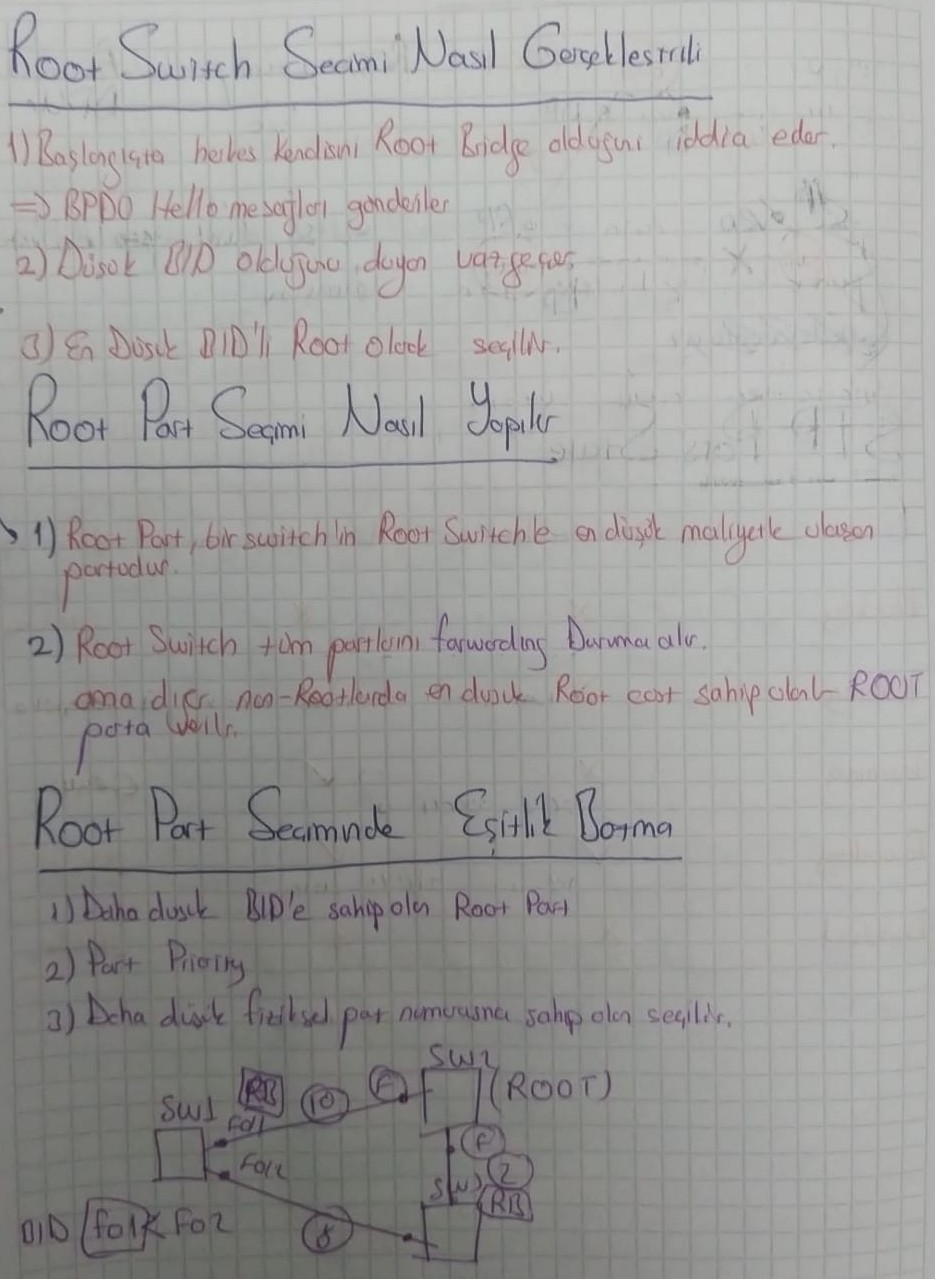 Root Switch Secimi Nasıl Gerçeklestrili
1) Başlangıçta herkes Kendisini Root Bridge olduğunu iddia eder.
=> BPDO Hello mesajları gönderiler
2) Düsük BID olduğunu duyan vazgeçer.
3) En Düsük BID'li Root olarak seçilir.
Root Part Seçimi Nasıl Yapılır
1) Root Port, bir switch'in Root Switch'e en düşük maliyetle ulasan
portudur.
2) Root Switch tüm portlarını forwarding Duruma alır.
ama diğer non-Rootlarda en dusuk Root cost sahip olan ROOT
porta
Root Part Secimnde Eşitlik Bozma
1) Daha dusuk BID'e sahip olan Root Port
2) Port Priority
3) Daha düsük fiziksel por numarasına sahip olan seçilir.
SW2
(ROOT)
RB
10
F
SW1
F01
F
F012
2
SW
RB
BID F01< F02
8